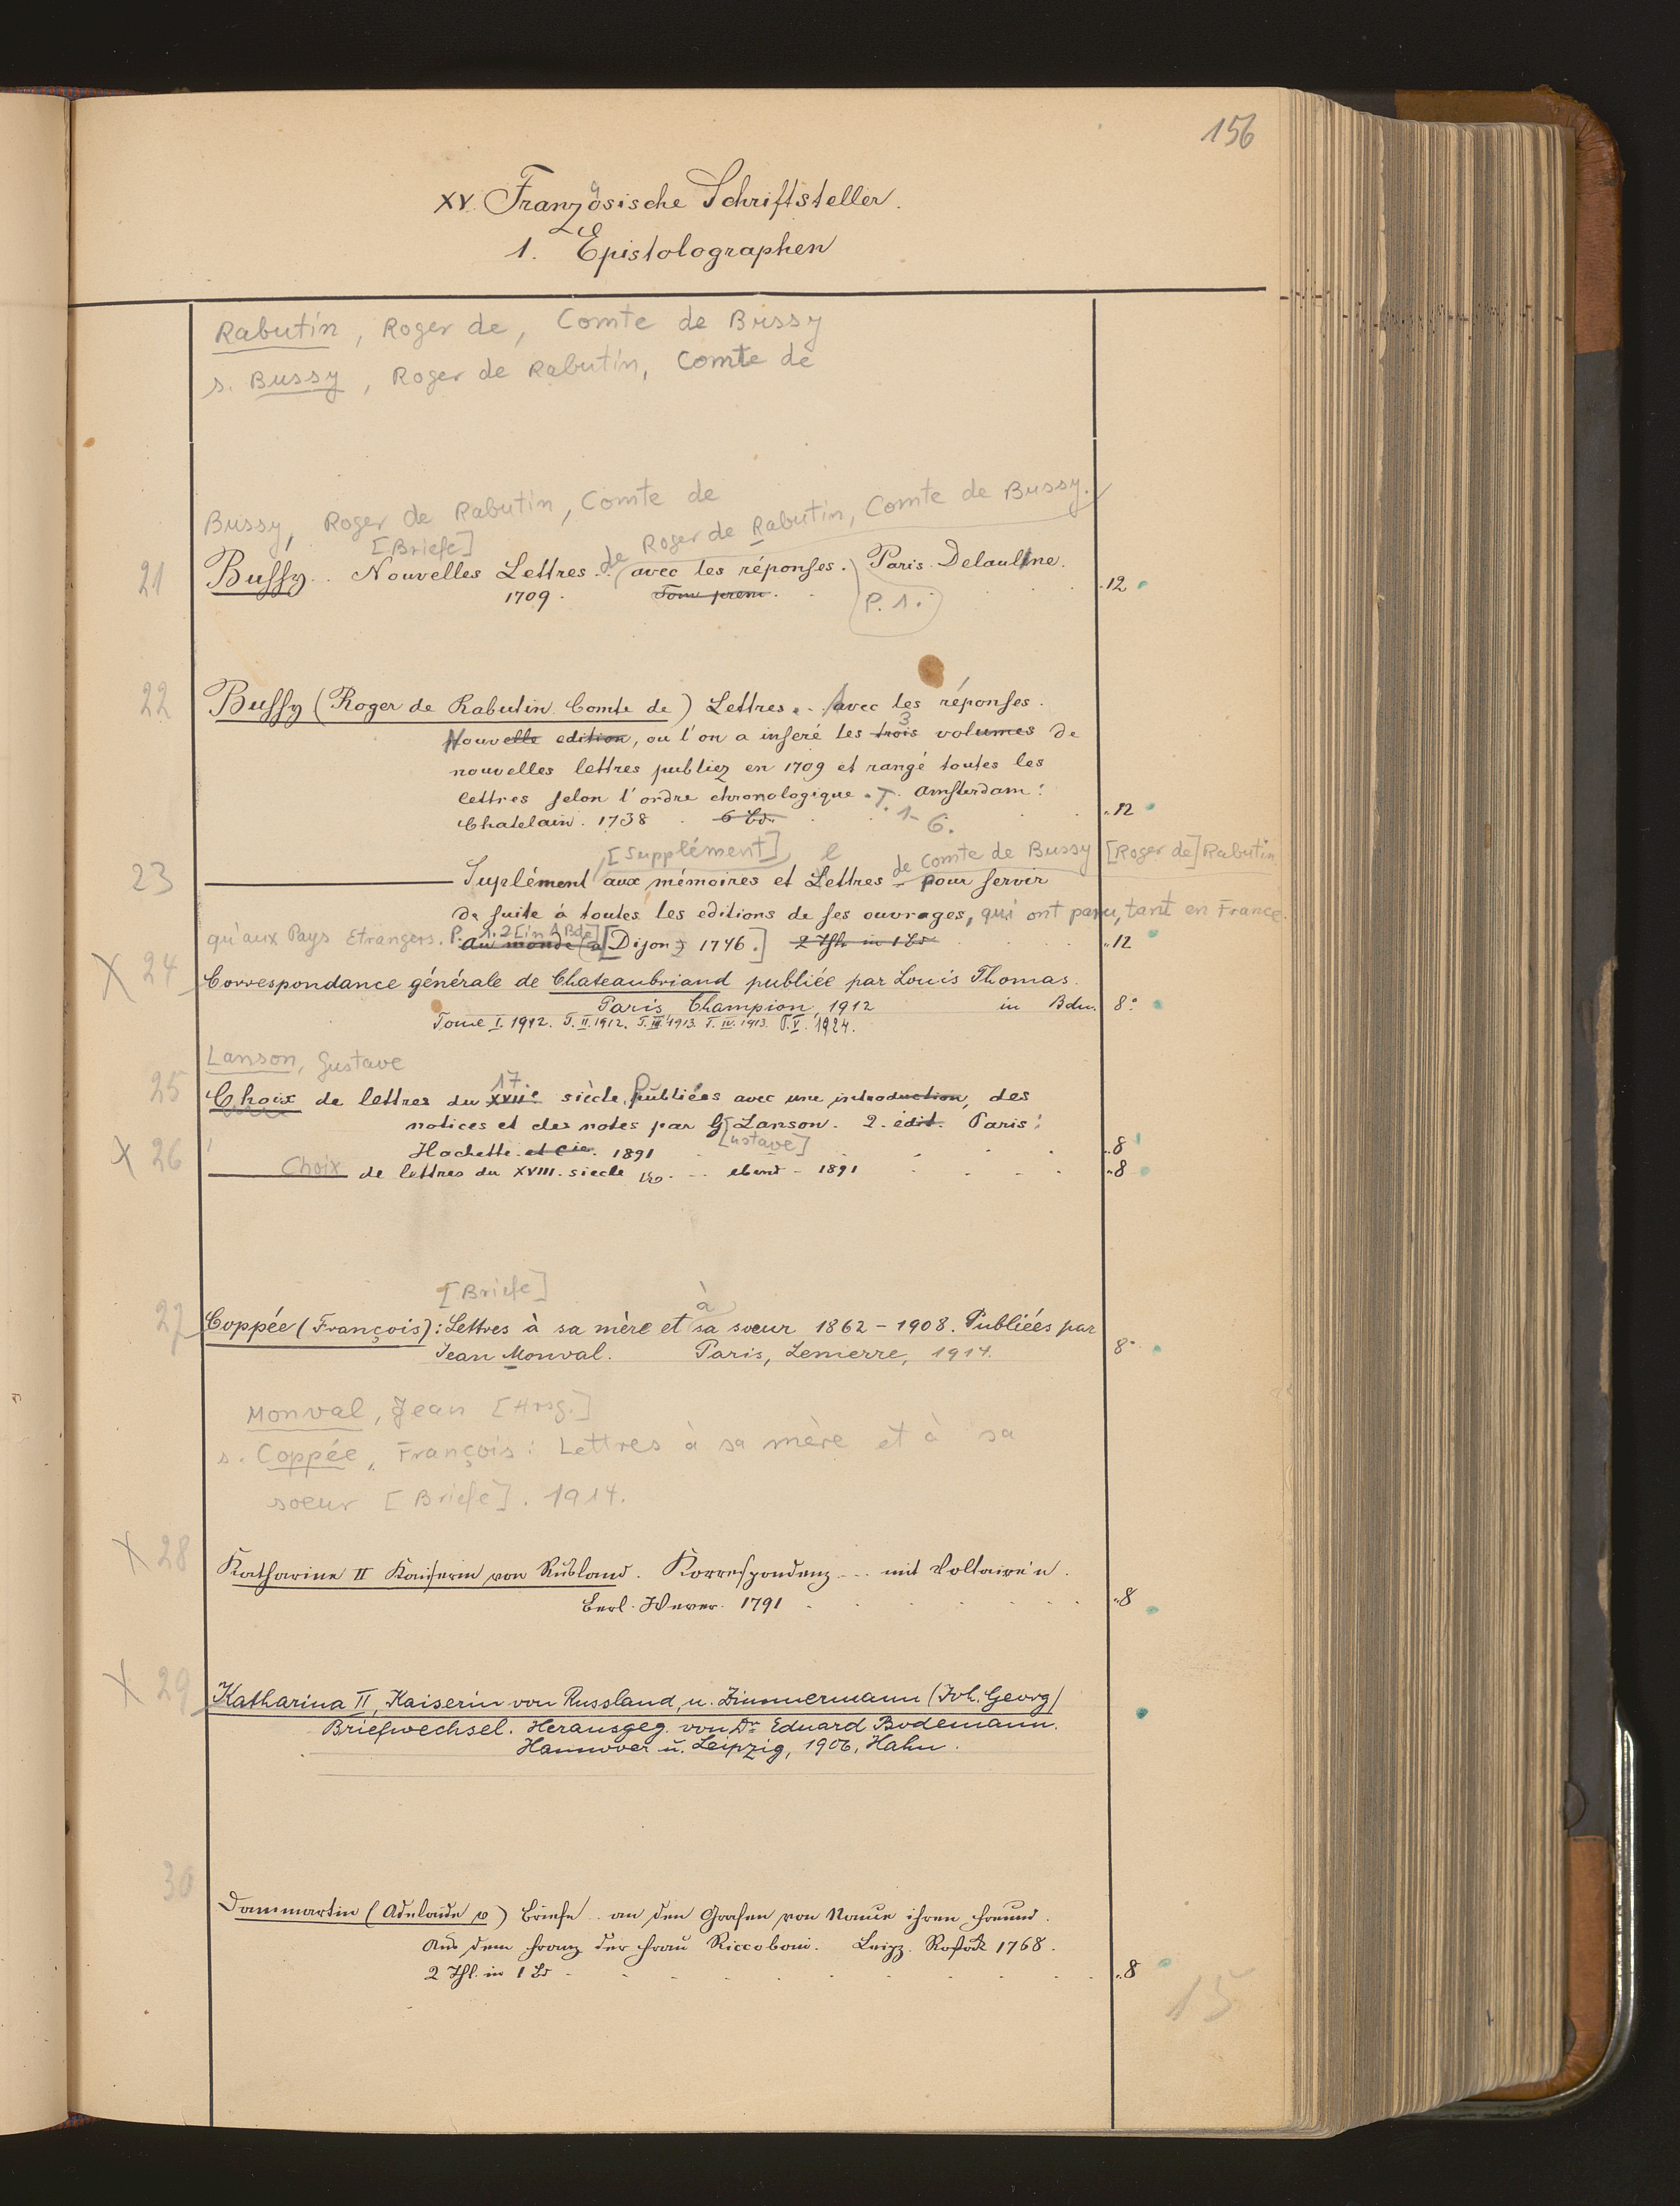 156
XV. Französische Schriftsteller.
1. Epistolographen
Rabutin, Roger de, Comte de Bussy
s. Bussy, Roger de Rabutin, Comte de
Bussy, Roger de Rabutin, Comte de
[Briefe] de Roger de Rabutin, Comte de Bussy.
21 Bussy. Nouvelles Lettres .. avec les réponses. Paris. Delaulne.
1709. Tom prem. P. 1. 12
22 Bussy (Roger de Rabutin Comte de) Lettres . . avec les réponses.
Nouvelle edition, ou l'on a inseré les trois 3 volumes de
nouvelles lettres publiez en 1709 et rangé toutes les
lettres selon l'ordre chronologique. T. Amsterdam:
Chatelain. 1738. 6 Bd. 1-6. 12
[Supplément] l de Comte de Bussy [Roger de] Rabutin
23 Suplément aux mémoires et Lettres pour servir
de suite à toutes les editions de ses ouvrages, qui ont paru, tant en France
qu'aux Pays Etrangers. P. 1. 2 [in 1 Bde] au monde (a [Dijon) 1746.] 2 Thle in 1 Bd 12
X 24 Correspondance générale de Chateaubriand publiée par Louis Thomas.
Paris, Champion, 1912 in Bdn. 8°
Tome I. 1912. T. II. 1912. T. III. 1913. T. IV. 1913. T. V. 1924.
Lanson, Gustave
25 Choix de lettres du XVIIe 17. siècle. Publiées avec une introduction, des
notices et des notes par G[ustave] Lanson. 2. édit. Paris:
Hachette et Cie. 1891 8
X 26 Choix de lettres du XVIII. siecle ... ebend - 1891 8
[Briefe] à
27 Coppée (François): Lettres à sa mère et sa soeur 1862-1908. Publiées par
Jean Monval. Paris, Lemerre, 1914. 8°
Monval, Jean [Hrsg.]
s. Coppée, François: Lettres à sa mère et à sa
soeur [Briefe]. 1914.
X 28 Katharine II Kaiserin von Rußland. Korrespondenz ... mit Voltaire'n.
Berl. Wever. 1791 8
X 29 Katharina II, Kaiserin von Russland, u. Zimmermann (Joh. Georg)
Briefwechsel. Herausgeg. von Dr. Eduard Bodemann.
Hannover u. Leipzig, 1906, Hahn.
30 Dammartin (Adelaide v) Briefe .. an den Grafen von Nance ihren Freund.
Aus dem Franz der Frau Riccoboni. Leipz. Rostock 1768.
2 Thl. in 1 Bd 8
15